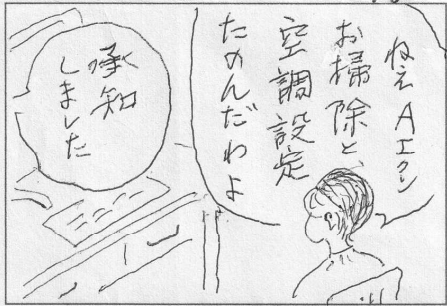 ねえAエクン
お掃除と、
空調設定
たのんだわよ
承知
しました